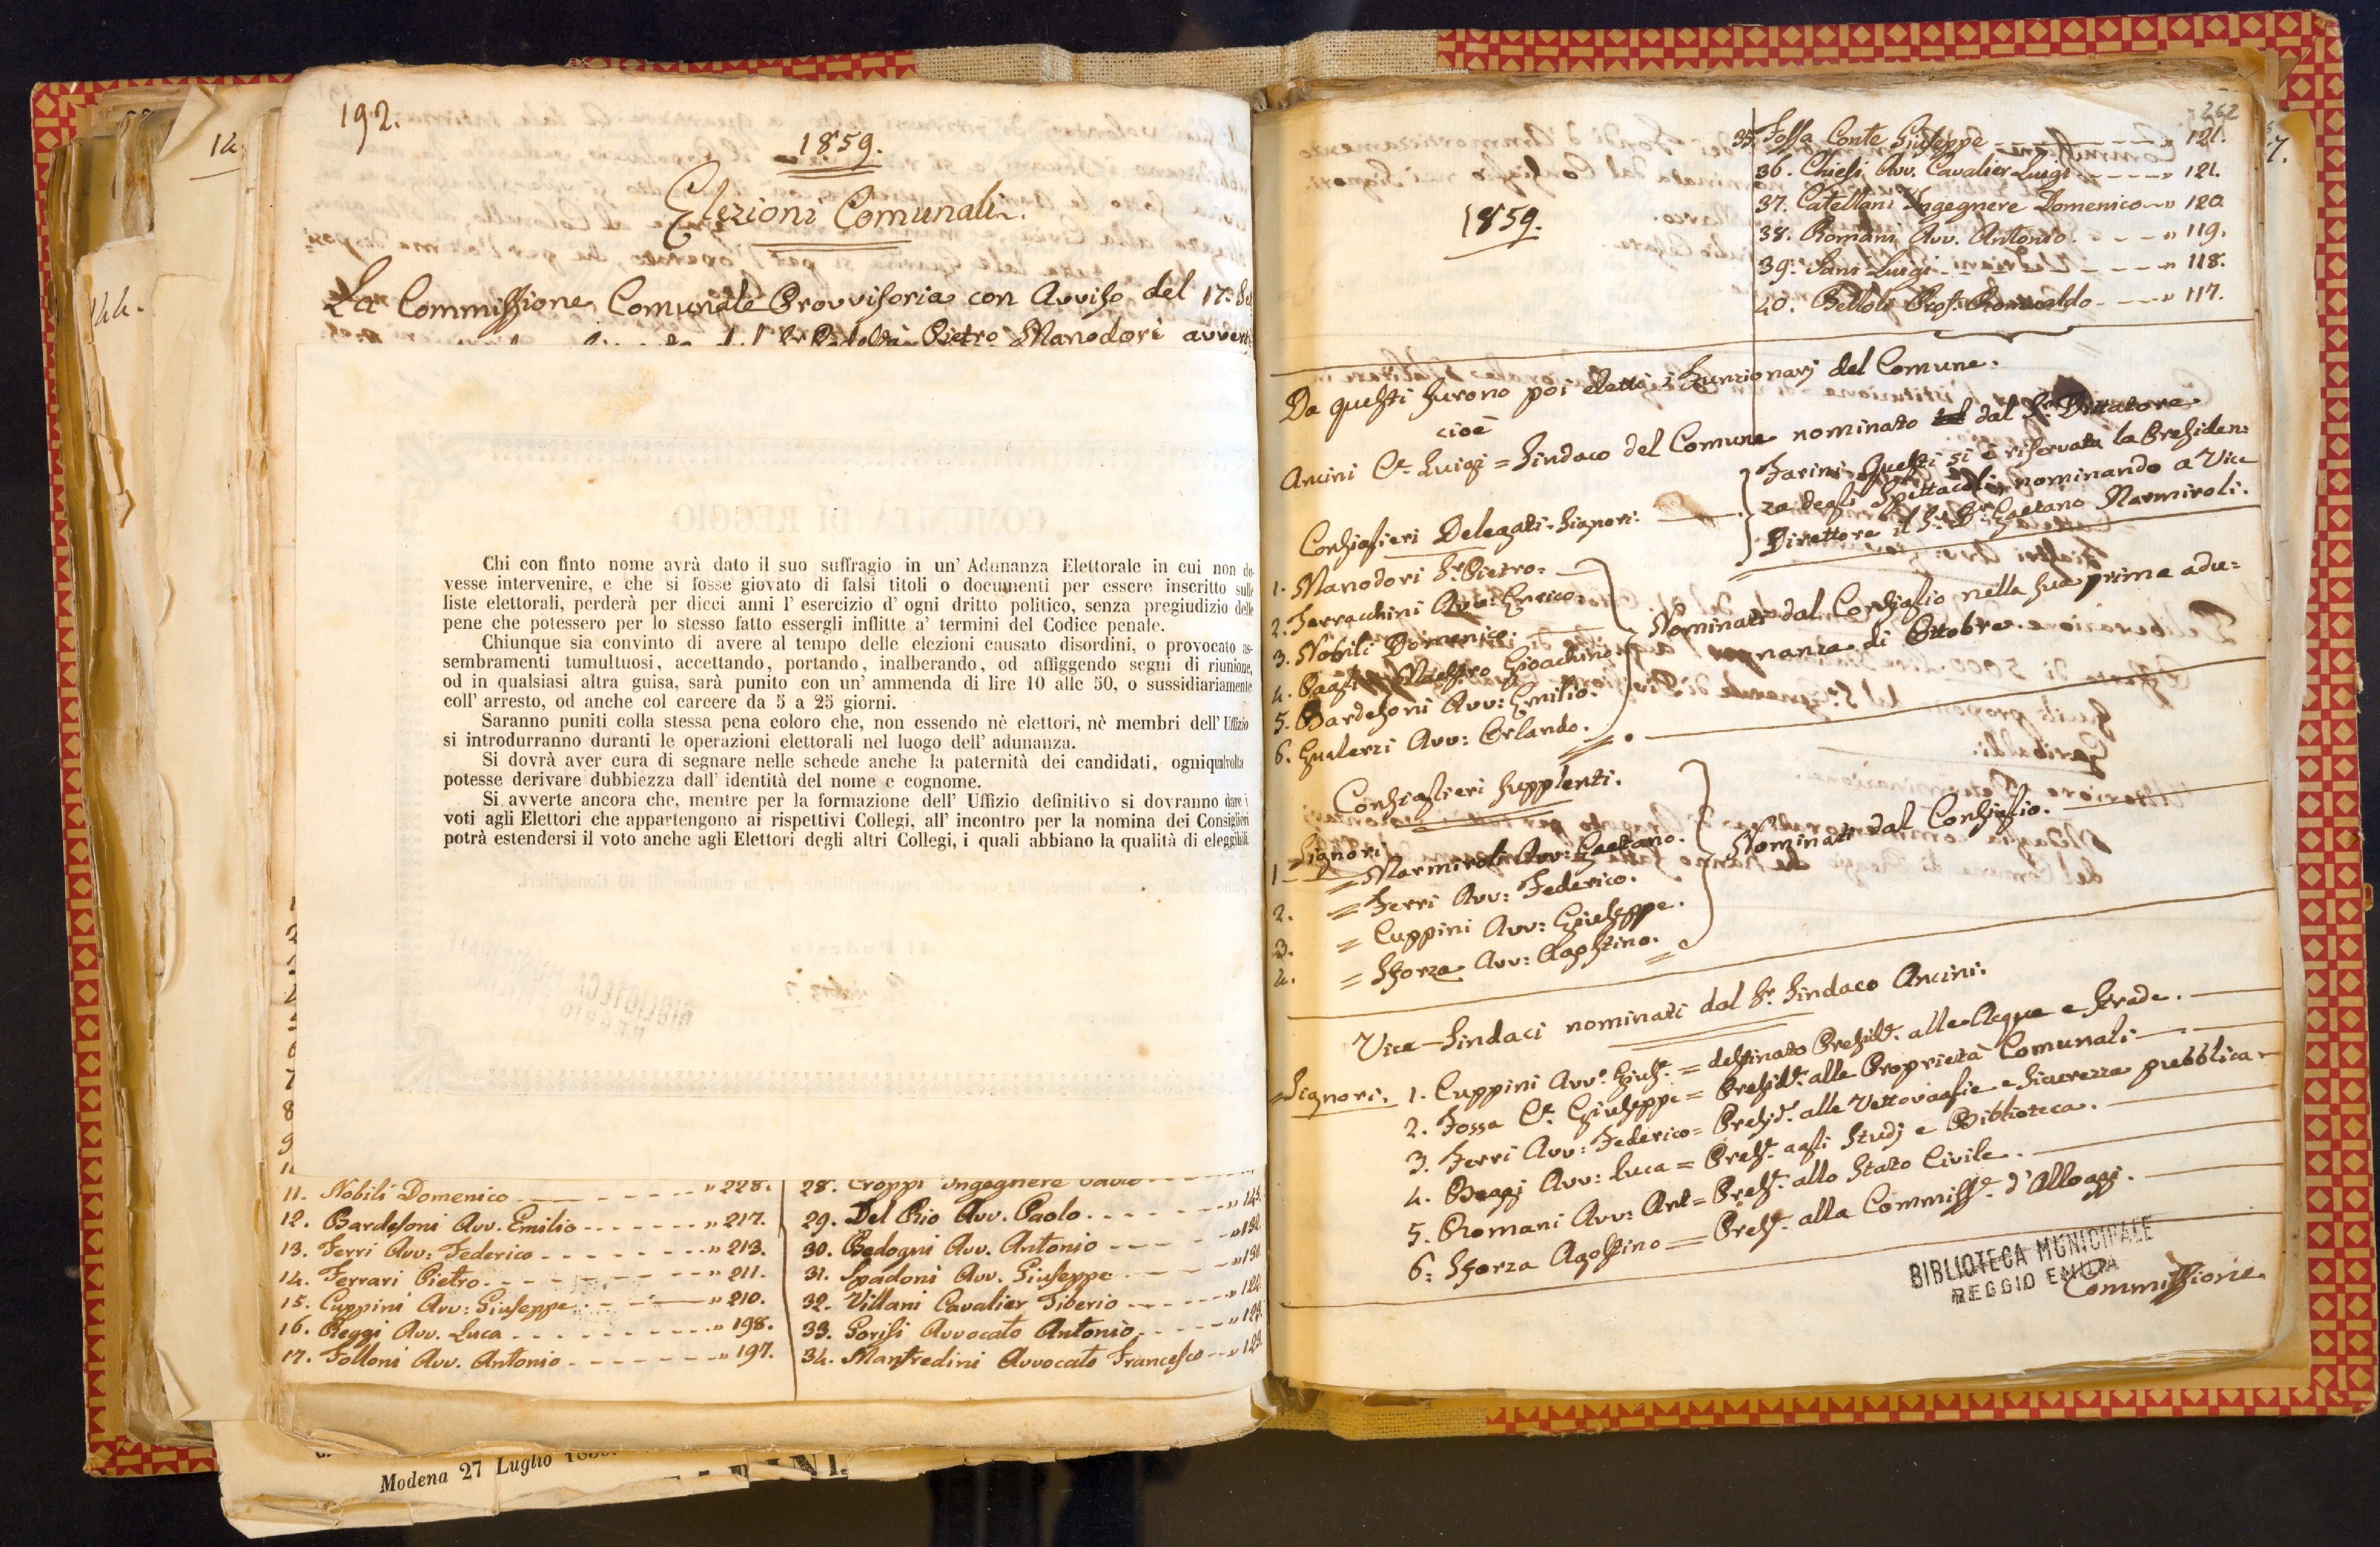 192.
1859.
Elezioni Comunali.
La Commissione Comunale Provvisoria con Avviso del 17.
Pietro Manodori
Chi con finto nome avrà dato il suo suffragio in un' Adunanza Elettorale in cui non do-
vesse intervenire, e che si fosse giovato di falsi titoli o documenti per essere inscritto sulle
liste elettorali, perderà per dieci anni l' esercizio d' ogni dritto politico, senza pregiudizio delle
pene che potessero per lo stesso fatto essergli inflitte a' termini del Codice penale.
Chiunque sia convinto di avere al tempo delle elezioni causato disordini, o provocato as-
sembramenti tumultuosi, accettando, portando, inalberando, od affiggendo segni di riunione,
od in qualsiasi altra guisa, sarà punito con un' ammenda di lire 10 alle 50, o sussidiariamente
coll' arresto, od anche col carcere da 5 a 25 giorni.
Saranno puniti colla stessa pena coloro che, non essendo nè elettori, nè membri dell' Uffizio
si introdurranno duranti le operazioni elettorali nel luogo dell' adunanza.
Si dovrà aver cura di segnare nelle schede anche la paternità dei candidati, ogniqualvolta
potesse derivare dubbiezza dall' identità del nome e cognome.
Si avverte ancora che, mentre per la formazione dell' Uffizio definitivo si dovranno dare i
voti agli Elettori che appartengono ai rispettivi Collegi, all' incontro per la nomina dei Consiglieri
potrà estendersi il voto anche agli Elettori degli altri Collegi, i quali abbiano la qualità di eleggibili.
11. Nobili Domenico " 228.
12. Bardesoni Avv. Emilio " 217.
13. Ferri Avv: Federico " 213.
14. Ferrari Pietro " 211.
15. Cuppini Avv: Giuseppe " 210.
16. Beggi Avv. Luca " 198.
17. Folloni Avv. Antonio " 197.
28. Croppi Ingegnere
29. Del Rio Avv. Paolo
30. Bedogni Avv. Antonio
31. Spadoni Avv. Giuseppe
32. Villani Cavalier Tiberio
33. Gorisi Avvocato Antonio
34. Manfredini Avvocato Francesco
Modena 27 Luglio
262
1859.
35. Fossa Conte Giuseppe " 121.
36. Chiesi Avv. Cavalier Luigi " 121.
37. Catellani Ingegnere Domenico " 120
38. Romani Avv. Antonio " 119.
39. Sani Luigi " 118.
40. Belloli Prof. Romualdo " 117.
Da questi furono poi eletti i Funzionarj del Comune.
cioè
Ancini Cte. Luigi = Sindaco del Comune nominato dal Sr. Dittatore
Farini. Questi si è riservata la Presiden:
za degli Spettacoli, nominando a Vice
Direttore il Sr. Dr. Gaetano Marmiroli.
Consiglieri Delegati. Signori:
1. Manodori Sr. Pietro.
2. Ferracchini Avv: Enrico.
3. Nobili Domenico.
4. Paglia Maestro Gioachino
5. Bardesoni Avv: Emilio.
6. Gualerzi Avv: Orlando.
Nominati dal Consiglio nella sua prima adu=
nanza di Ottobre.
Consiglieri Supplenti.
Signori
1 = Marmiroli Avv: Gaetano.
2. = Ferri Avv: Federico.
3. = Cuppini Avv: Giuseppe.
4. = Sforza Avv: Agostino.
Nominati dal Consiglio.
Vice-Sindaci nominati dal Sr. Sindaco Ancini.
Signori. 1. Cuppini Avv. Gius. = destinato Presidte. alle Acque e Strade.
2. Fossa Cte. Giuseppe = Presidte. alle Proprietà Comunali
3. Ferri Avv: Federico = Presidte. alle Vettovaglie e Sicurezza pubblica
4. Beggi Avv: Luca = Preste. agli Studj e Biblioteca.
5. Romani Avv: Ant = Preste. allo Stato Civile.
6: Sforza Agostino = Preste. alla Commisse. d'Alloggi.
BIBLIOTECA MUNICIPALE
REGGIO EMILIA
Commissione